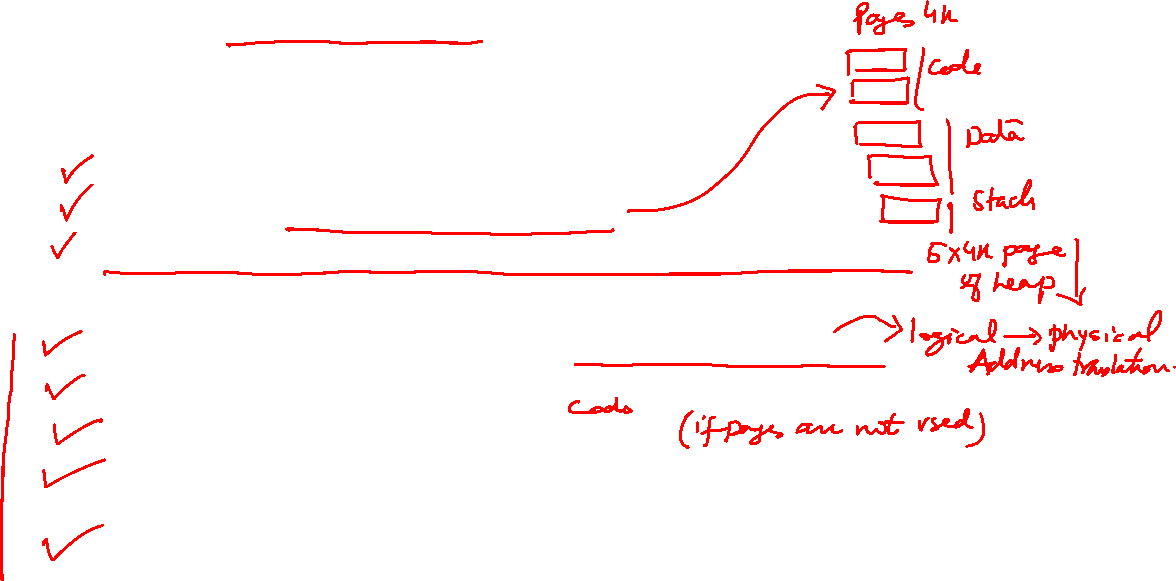 Pages 4K
Code
Data
Stack
5x4K page
of heap
logical → physical
Address translation.
Code
(if pages are not used)